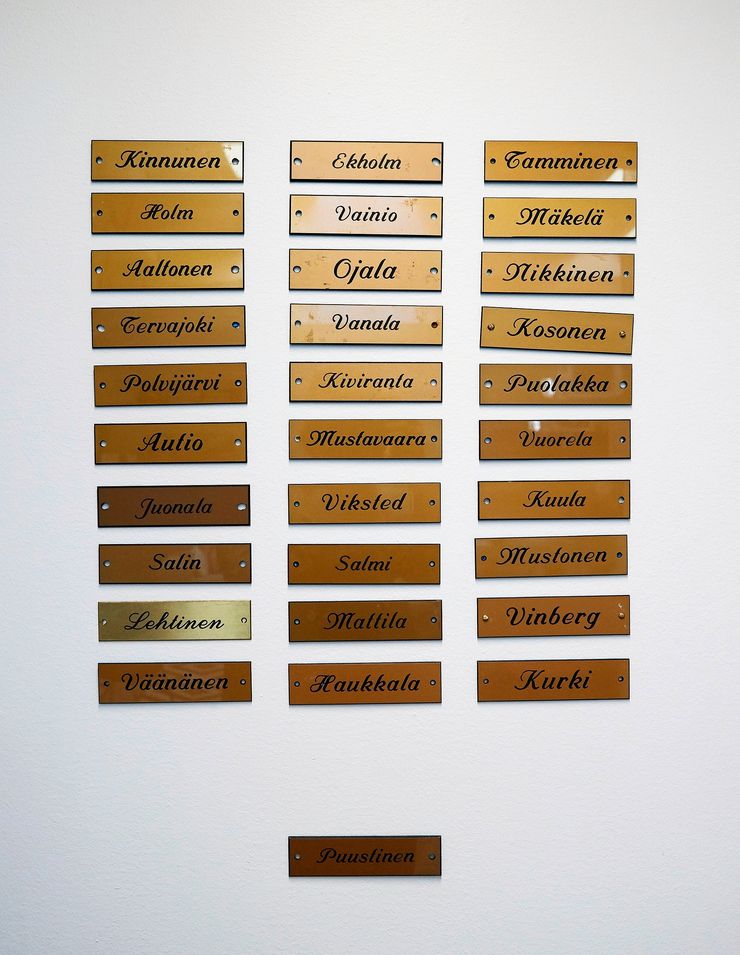 Kinnunen
Holm
Aaltonen
Tervajoki
Polvijärvi
Autio
Juonala
Salin
Lehtinen
Väänänen
Ekholm
Vainio
Ojala
Vanala
Kiviranta
Mustavaara
Viksted
Salmi
Mattila
Haukkala
Tamminen
Mäkelä
Nikkinen
Kosonen
Puolakka
Vuorela
Kuula
Mustonen
Vinberg
Kurki
Puustinen